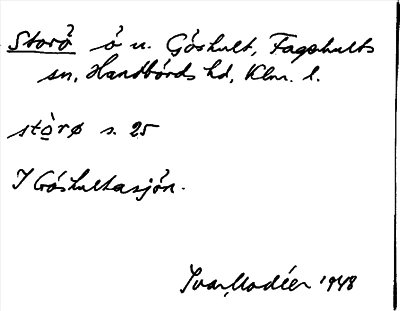 Storö ö u. Gåshult, Fagerhults
sn, Handbörds hd, Klm. l.
stòrø s. 25
I Gåshultasjön.
Ivar Modéer 1948